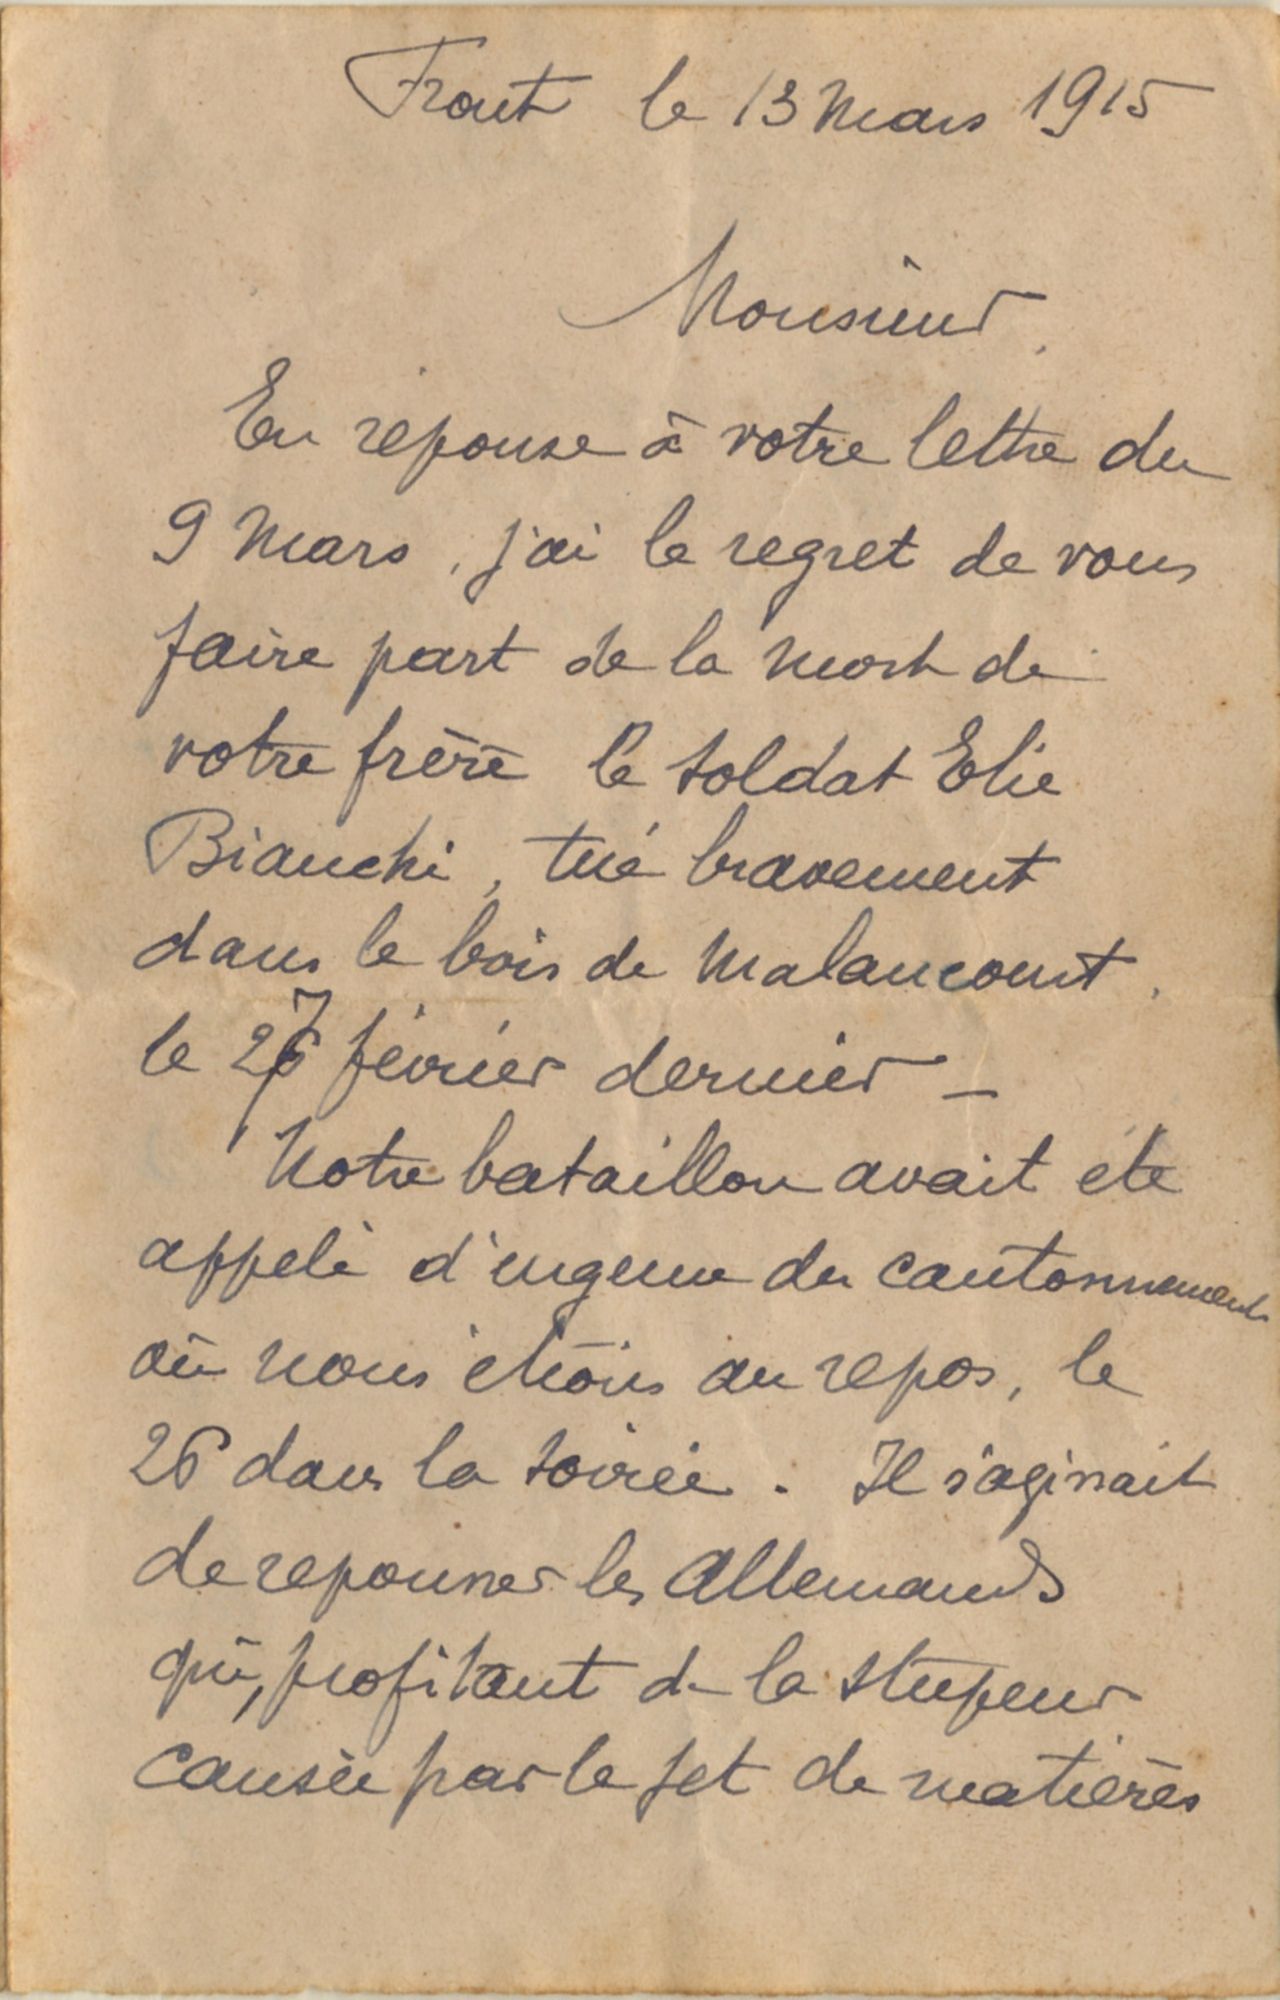 Front le 13 Mars 1915
Monsieur,
En réponse à votre lettre du
9 Mars, j'ai le regret de vous
faire part de la mort de
votre frère le soldat Elie
Bianchi, tué bravement
dans le bois de Malancourt,
le 27 février dernier _
Notre bataillon avait été
appelé d'urgence du cantonnement
où nous étions au repos, le
26 dans la soirée. Il s'agissait
de repousser les Allemands
qui, profitant de la stupeur
causée par le jet de matières